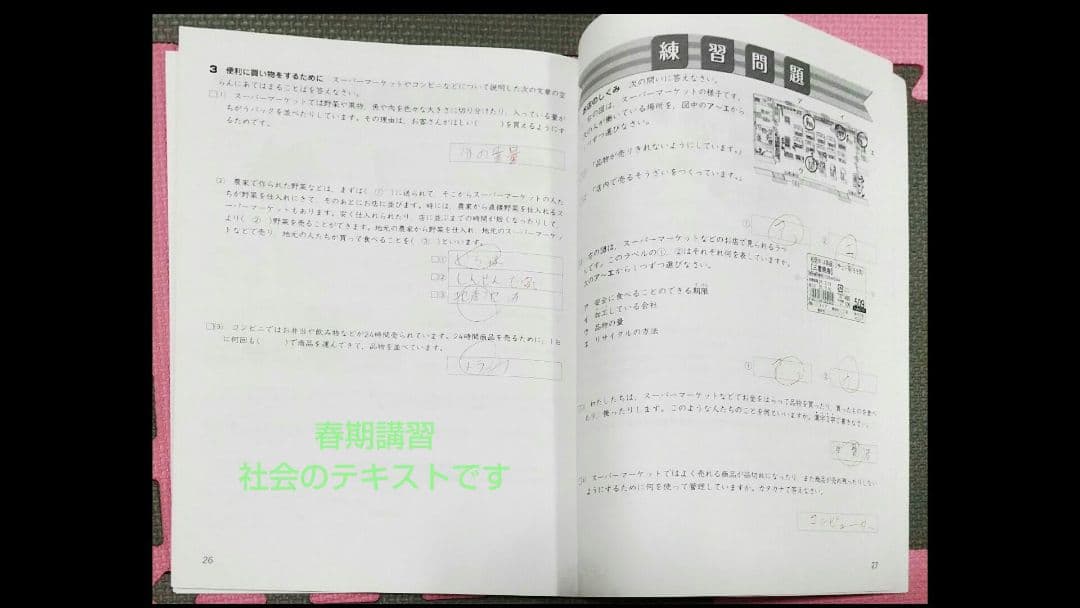 3 便利に買い物をするために スーパーマーケットやコンビニなどについて説明した次の文章の空
らんにあてはまることばを答えなさい。
□(1) スーパーマーケットでは野菜や果物、魚や肉を色々な大きさに切り分けたり、入っている量が
ちがうパックを並べたりしています。その理由は、お客さんがほしい( )を買えるようにす
るためです。
の重量
(2) 農家で作られた野菜などは、まずは( ① )に送られて、そこからスーパーマーケットの人た
ちが野菜を仕入れにきて、そのあとにお店に並びます。時には、農家から直接野菜を仕入れるス
ーパーマーケットもあります。安く仕入れられたり、店に並ぶまでの時間が短くなったりして、
より( ② )野菜を売ることができます。地元の農家から野菜を仕入れ、地元のスーパーマーケッ
トなどで売り、地元の人たちが買って食べることを( ③ )といいます。
□①
□② しんせん
□③ 地産地
□(3) コンビニではお弁当や飲み物などが24時間売られています。24時間商品を売るために、1日
に何回も( )で商品を運んできて、品物を並べています。
トラック
春期講習
社会のテキストです
26
練習問題
お店のしくみ 次の問いに答えなさい。
の図は、スーパーマーケットの様子です。
の人が働いている場所を、図中のア〜エから
1つずつ選びなさい。
「品物が売りきれないようにしています。」
「店内で売るそうざいをつくっています。」
ア
イ
ウ
エ
① ②
の図は、スーパーマーケットなどのお店で見られるラベ
ルです。このラベルの①、②はそれぞれ何を表していますか。
次のア〜エから1つずつ選びなさい。
ア 安全に食べることのできる期限
イ 加工している会社
ウ 品物の量
エ リサイクルの方法
① ②
わたしたちは、スーパーマーケットなどでお金をはらって品物を買ったり、買ったものを食べ
たり、使ったりします。このような人たちのことを何といいますか。漢字3字で書きなさい。
費者
スーパーマーケットではよく売れる商品が品切れになったり、また商品が売れ残ったりしない
ようにするために何を使って管理していますか。カタカナで答えなさい。
コンピューター
27